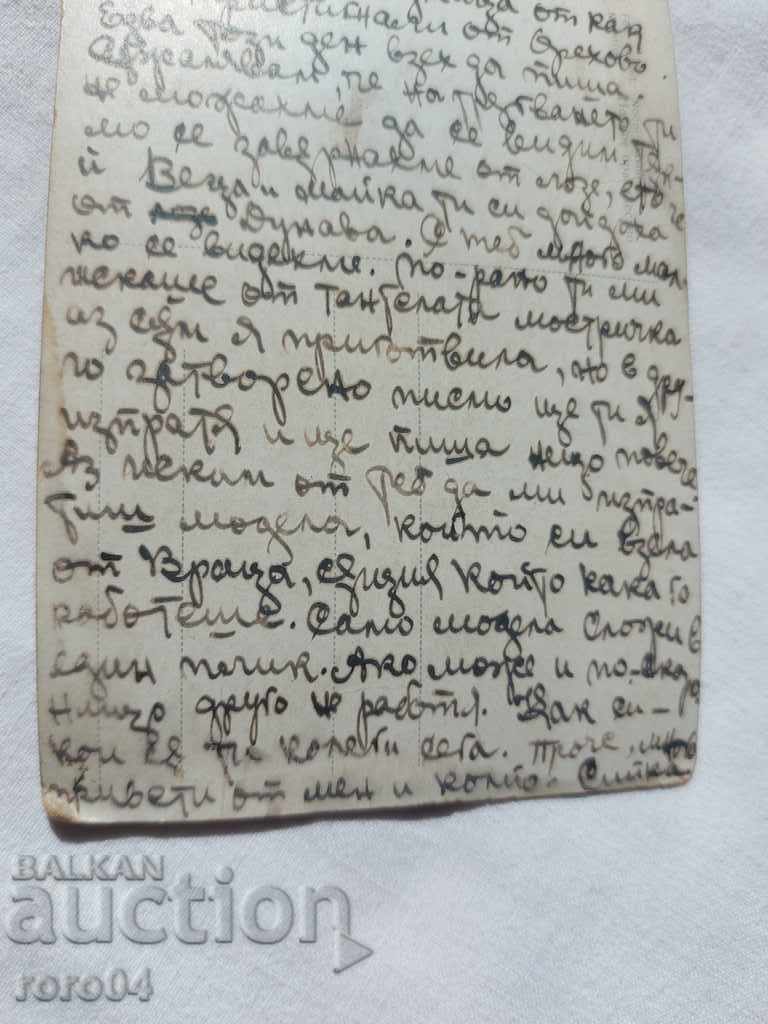 от как
пристигнали от Орехово.
Едва този ден взех да пиша.
Съжалявам, че на тръгването ти
не можахме да се видим. Тъ-
мо се завърнахме от лозе, ето че
и Веца и майка ти си дойдоха
от Дунава. С теб много мал-
ко се видехме. По-рано ти ми
искаше от тантелата мостричка
аз съм я приготвила, но в дру-
го затворено писмо ще ти я
изпратя и ще пиша нещо повече
Аз искам от теб да ми изпра-
тиш модела, който си взела
от Враца, същия който кака го
работеше. Само модела сложи в
един плик. Ако може и по-скоро
нищо друго не работя. Как си-
кои са ти колеги сега. Проче, много
привети от мен и Сийка
BALKAN
auction
roro04